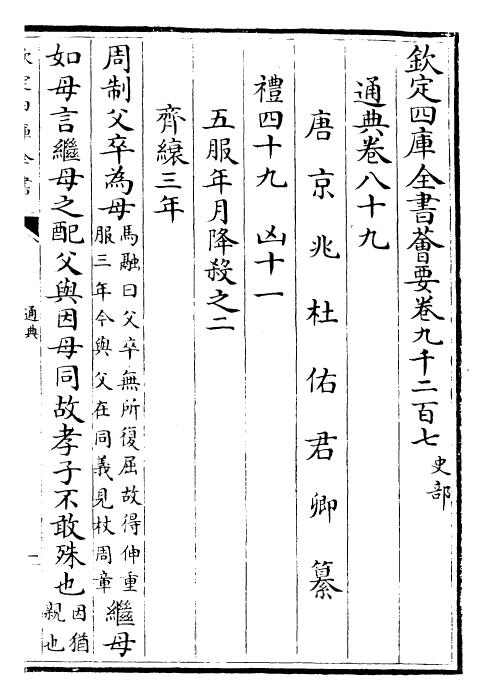 欽定四庫全書薈要卷九千二百七 史部
通典卷八十九
唐京兆杜佑君卿纂
禮四十九 凶十一
五服年月降殺之二
齊縗三年
周制父卒為母馬融曰父卒無所復屈故得伸重服三年今與父在同義見杖周章繼母
如母言繼母之配父與因母同故孝子不敢殊也因猶親也
欽定四庫全書
通典
一